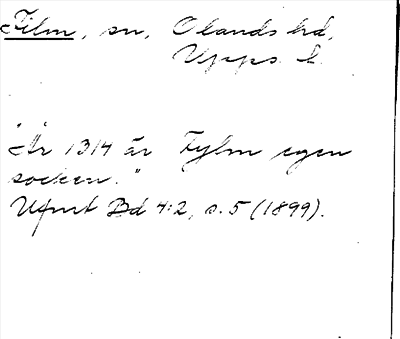 Film, sn, Olands hd,
Upps. l.
"År 1314 är Fylm egen
socken."
Ufmt Bd 4:2, s. 5 (1899).